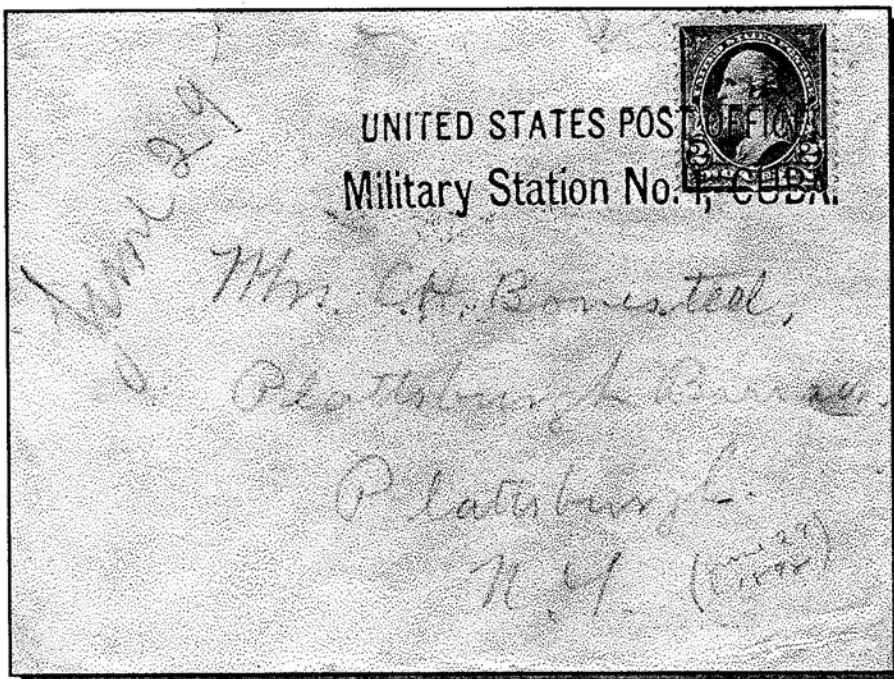 June 29
UNITED STATES POST OFFICE
Military Station No. 1, CUBA.
2 2
Mrs. C.H. Bonesteel,
Plattsburgh
Plattsburgh
N.Y. (June 29
1898)